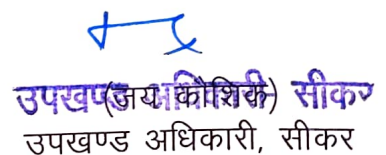 उपखण्ड अधिकारी सीकर
(जय कौशिक)
उपखण्ड अधिकारी, सीकर